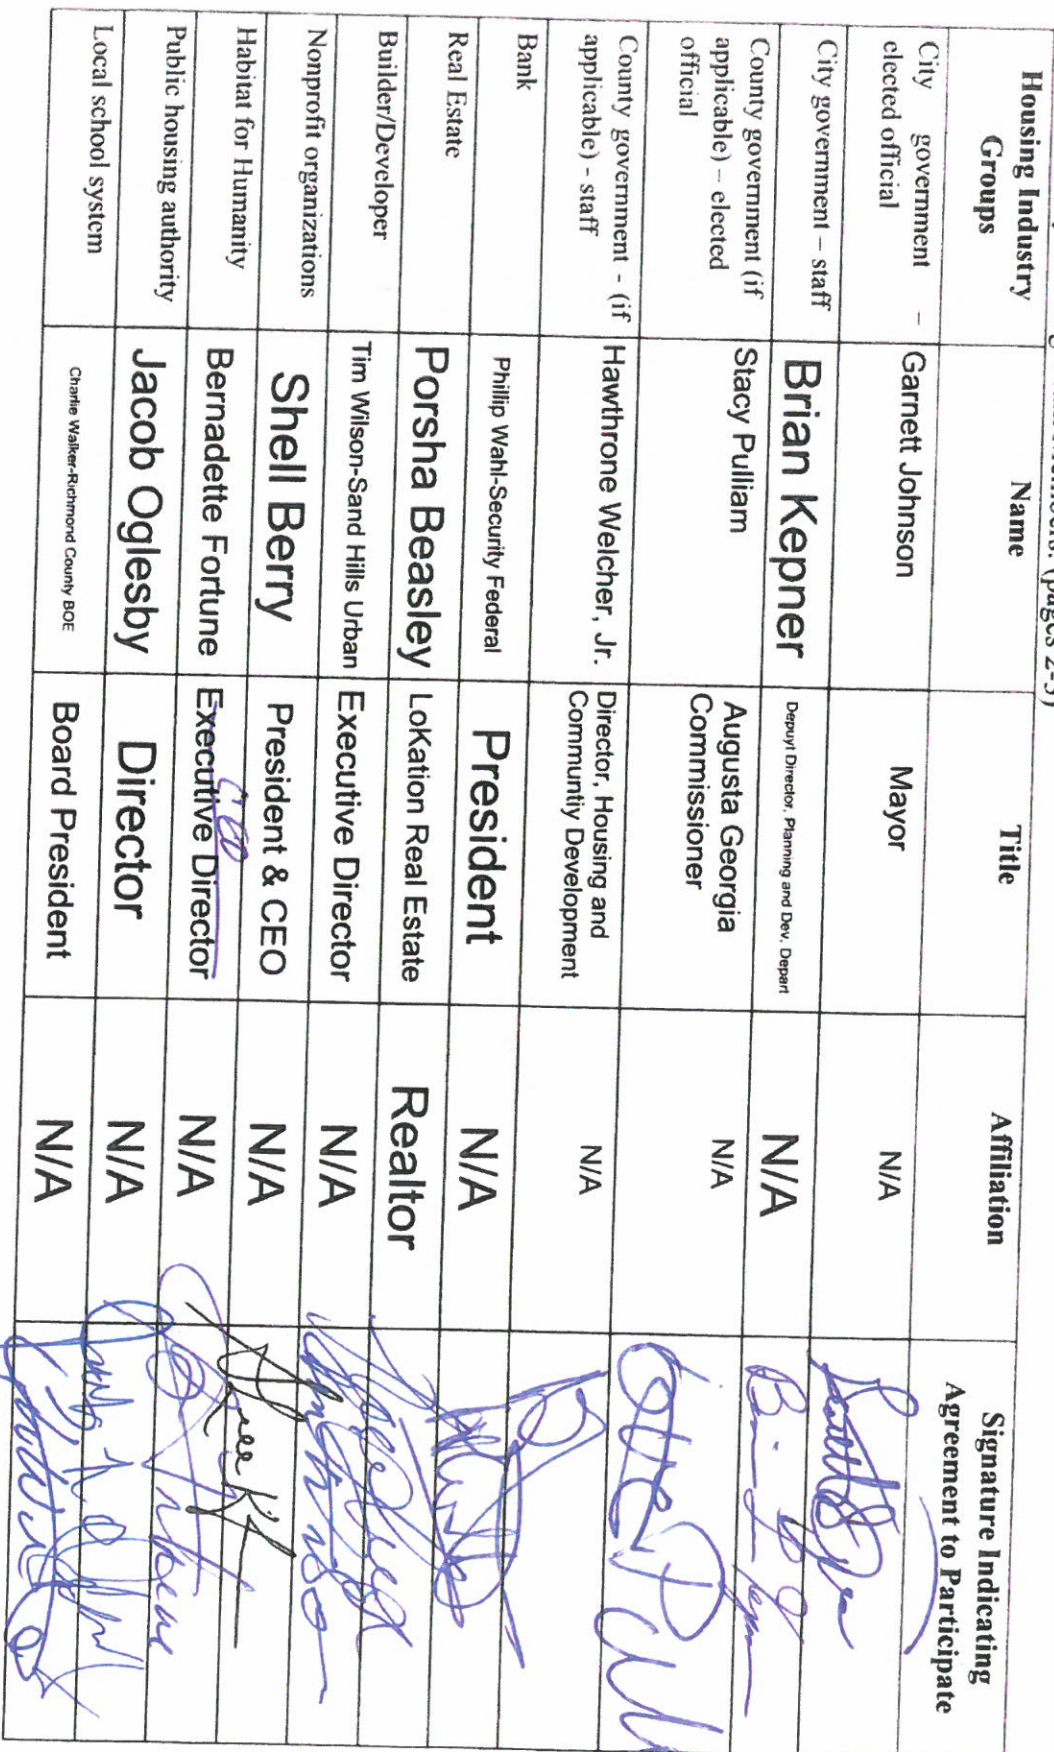 (pages 2-3)
Housing Industry Groups | Name | Title | Affiliation | Signature Indicating Agreement to Participate
City government – elected official | Garnett Johnson | Mayor | N/A
City government – staff | Brian Kepner | Depuyt Director, Planning and Dev, Depart | N/A
County government (if applicable) – elected official | Stacy Pulliam | Augusta Georgia Commissioner | N/A
County government - (if applicable) - staff | Hawthrone Welcher, Jr. | Director, Housing and Communtiy Development | N/A
Bank | Phillip Wahl-Security Federal | President | N/A
Real Estate | Porsha Beasley | LoKation Real Estate | Realtor
Builder/Developer | Tim Wilson-Sand Hills Urban | Executive Director | N/A
Nonprofit organizations | Shell Berry | President & CEO | N/A
Habitat for Humanity | Bernadette Fortune | Executive Director CEO | N/A
Public housing authority | Jacob Oglesby | Director | N/A
Local school system | Charlie Walker-Richmond County BOE | Board President | N/A